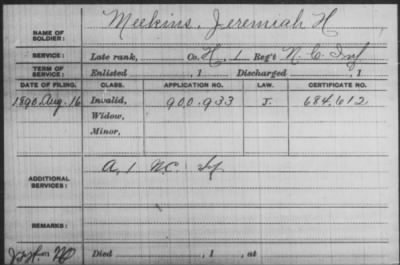 NAME OF SOLDIER: Meekins, Jeremiah H
SERVICE: Late rank, Co. H, 1 Reg't N.C. Inf
TERM OF SERVICE: Enlisted , 1 Discharged , 1
DATE OF FILING. CLASS. APPLICATION NO. LAW. CERTIFICATE NO.
1890 Aug. 16 Invalid, 900.933 J. 684.612
Widow,
Minor,
ADDITIONAL SERVICES: A, 1 N.C. Inf
REMARKS:
Died , 1 , at